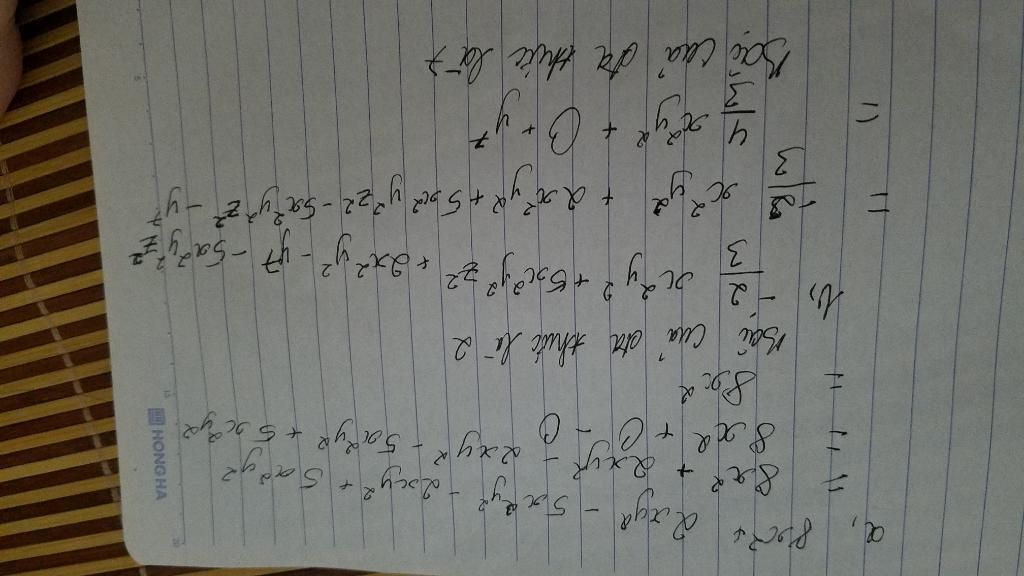 a, 8x² + 2xy² - 5x²y² - 2xy² + 5x²y²
= 8x² + 2xy² - 2xy² - 5x²y² + 5x²y²
= 8x² + 0 - 0
= 8x²
Bâc của đa thức là 2
b, -2/3 x²y² + 5x²y²z² + 2x²y² - y7 - 5x²y²z²
= -2/3 x²y² + 2x²y² + 5x²y²z² - 5x²y²z² - y7
= 4/3 x²y² + 0 + y7
Bậc của đa thức là 7
HONG HA